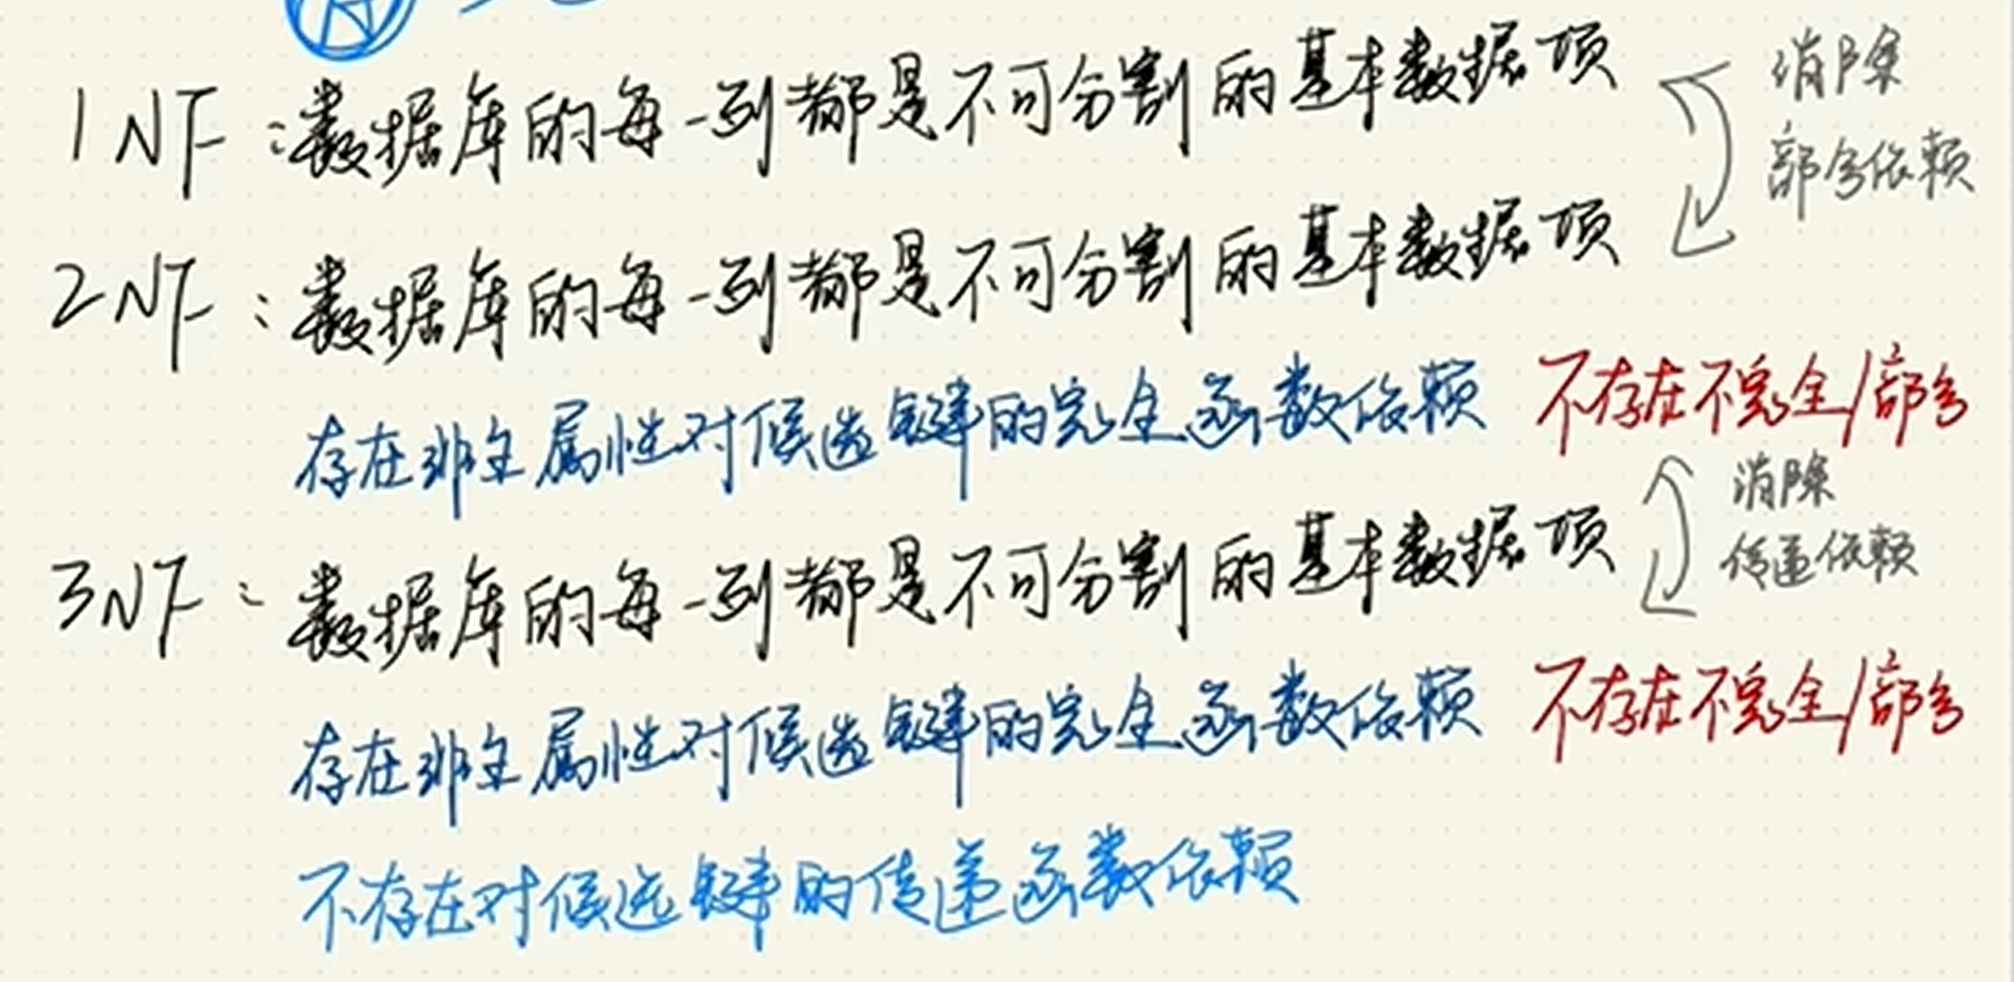 1NF:数据库的每一列都是不可分割的基本数据项
消除
部分依赖
2NF:数据库的每一列都是不可分割的基本数据项
存在非主属性对候选键的完全函数依赖 不存在不完全/部分
消除
传递依赖
3NF:数据库的每一列都是不可分割的基本数据项
存在非主属性对候选键的完全函数依赖 不存在不完全/部分
不存在对候选键的传递函数依赖